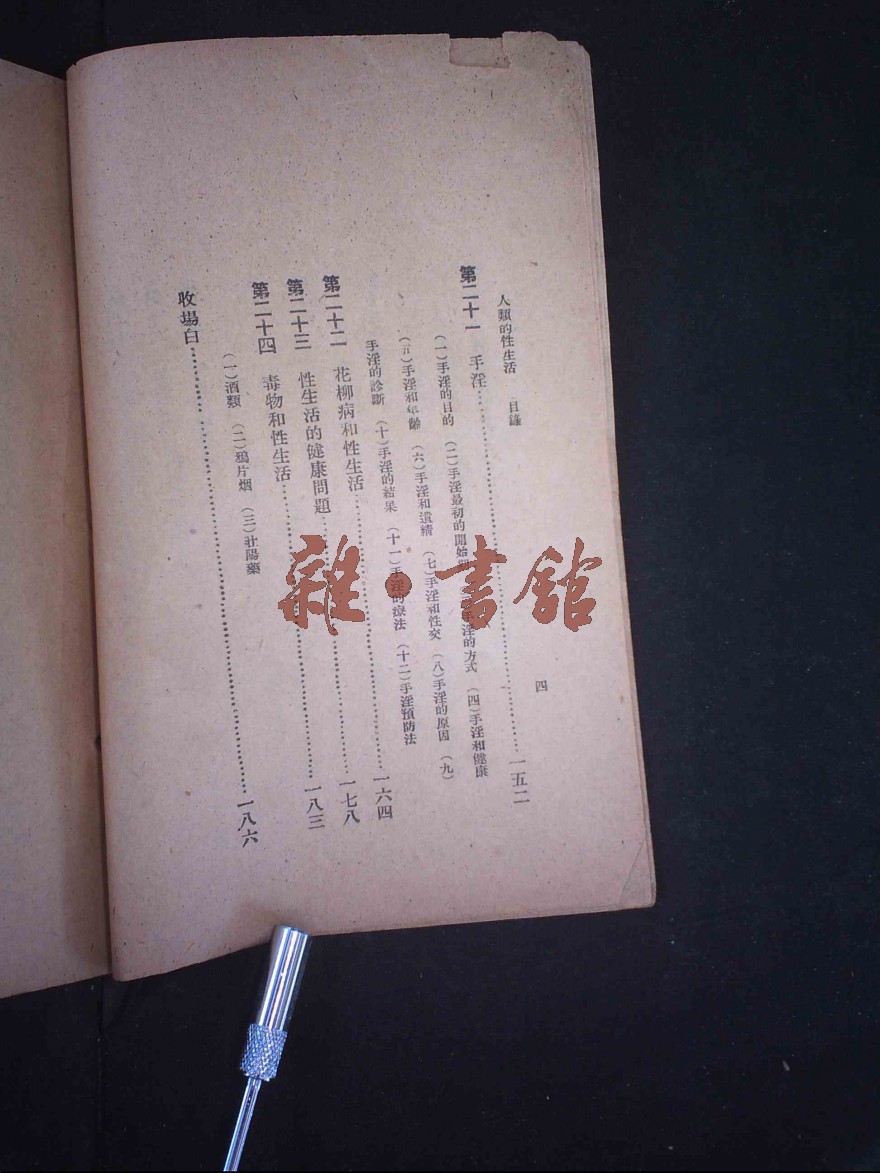 人類的性生活 目錄
四
第二十一 手淫……一五二
(一)手淫的目的 (二)手淫最初的開始 手淫的方式 (四)手淫和健康
(五)手淫和年齡 (六)手淫和遺精 (七)手淫和性交 (八)手淫的原因 (九)
手淫的診斷 (十)手淫的結果 (十一)手淫的療法 (十二)手淫預防法
第二十二 花柳病和性生活……一六四
第二十三 性生活的健康問題……一七八
第二十四 毒物和性生活……一八三
(一)酒類 (二)鴉片烟 (三)壯陽藥
收場白……一八六
雜·書館